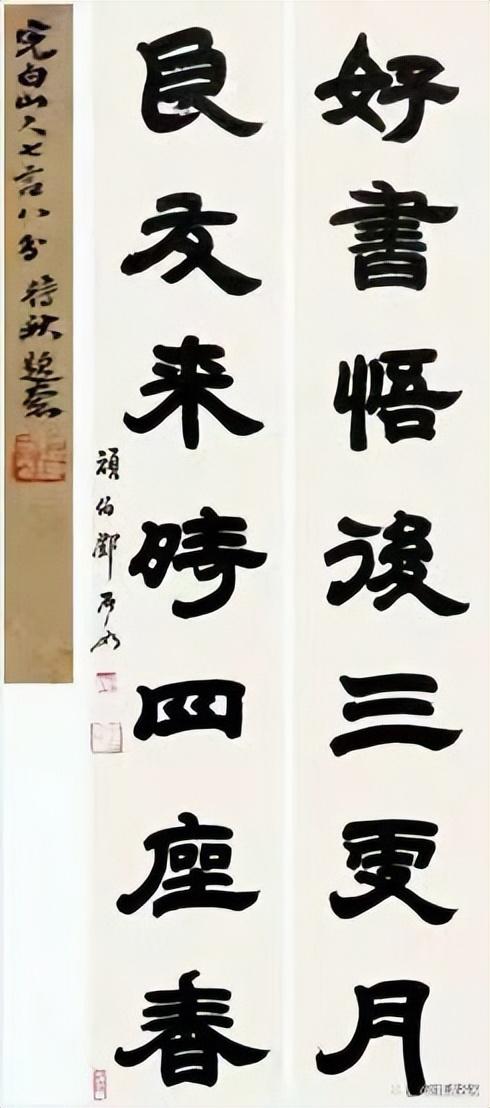 好書悟後三更月
良友来時四座春
頑伯鄧石如
完白山人七言八分 待秋題簽